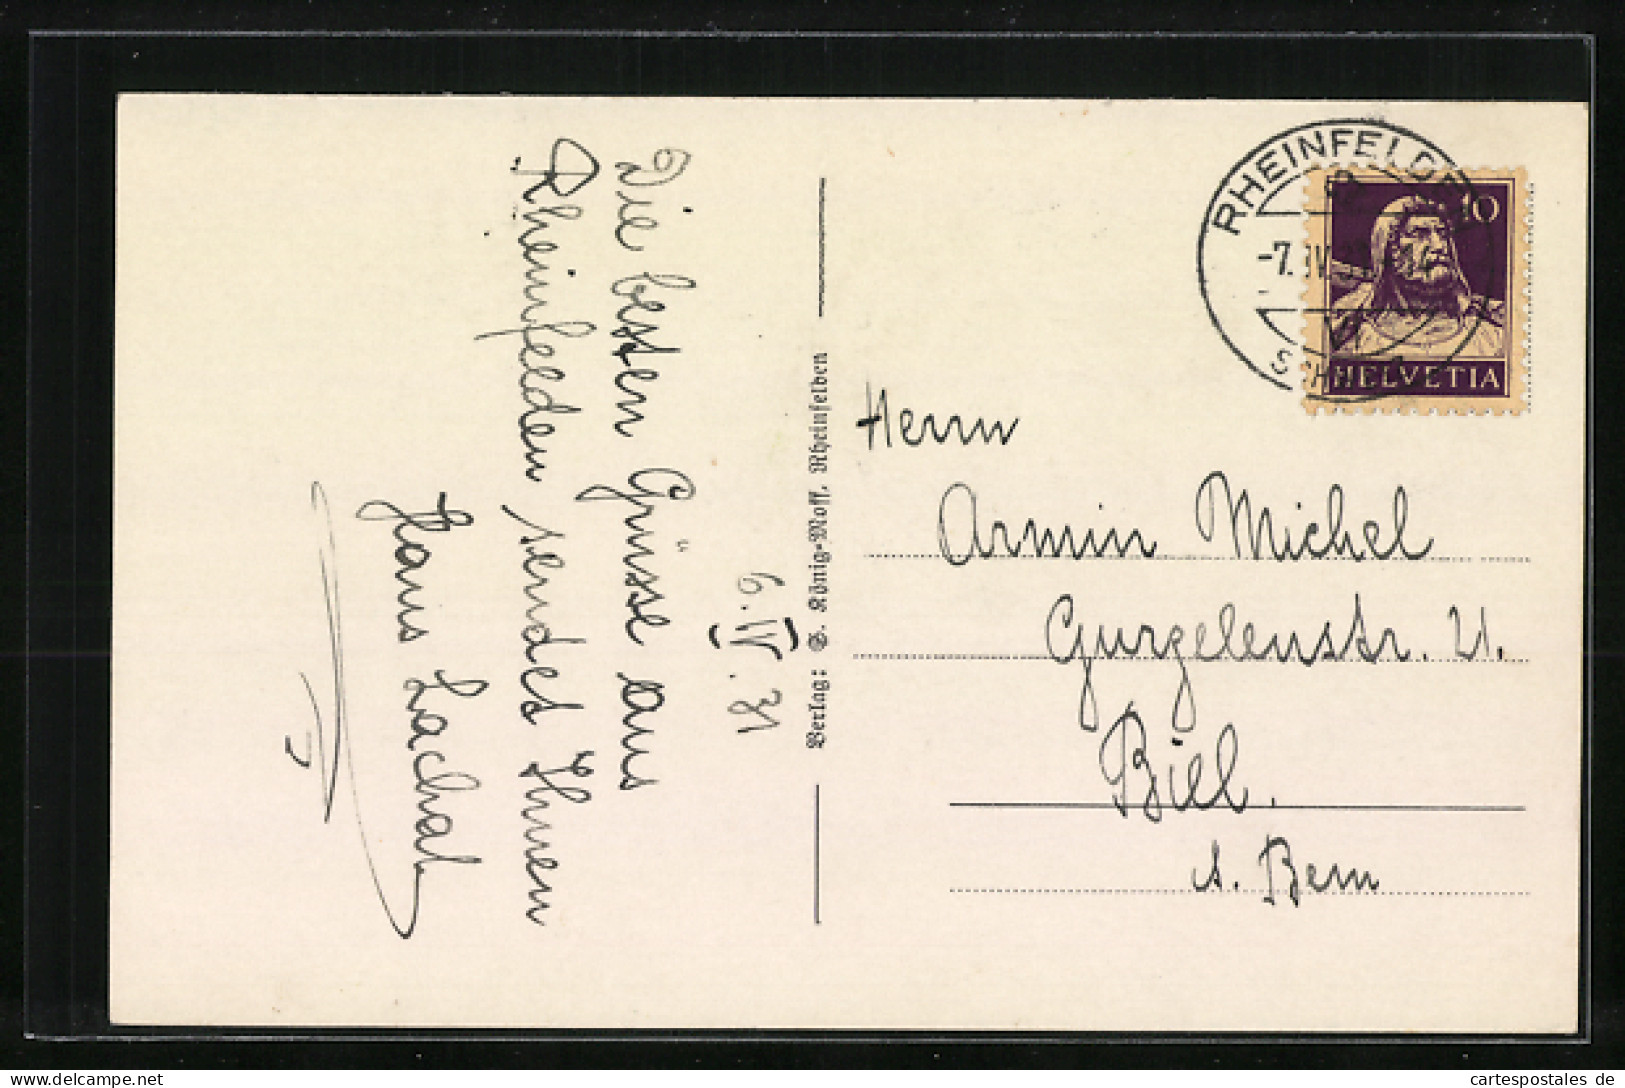 6.IV.31
Die besten Grüsse aus
Rheinfelden sendet Ihnen
Hans Lachat
Verlag: G. König-Moff, Rheinfelden
RHEINFELDEN
-7.IV.31
10
HELVETIA
Herrn
Armin Michel
Gurzelenstr. 21.
Biel.
Bern
cartespostales de